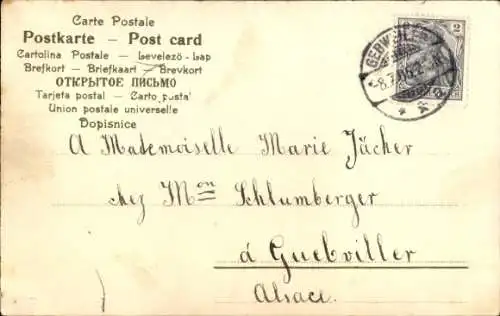 Carte Postale
Postkarte – Post card
Cartolina Postale – Levelező-Lap
Brefkort – Briefkaart – Brevkort
ОТКРЫТОЕ ПИСЬМО
Tarjeta postal – Carto posta
Union postale universelle
Dopisnice
2
A Mademoiselle Marie Jächer
chez Mon Schlumberger
à Guebviller
Alsace.